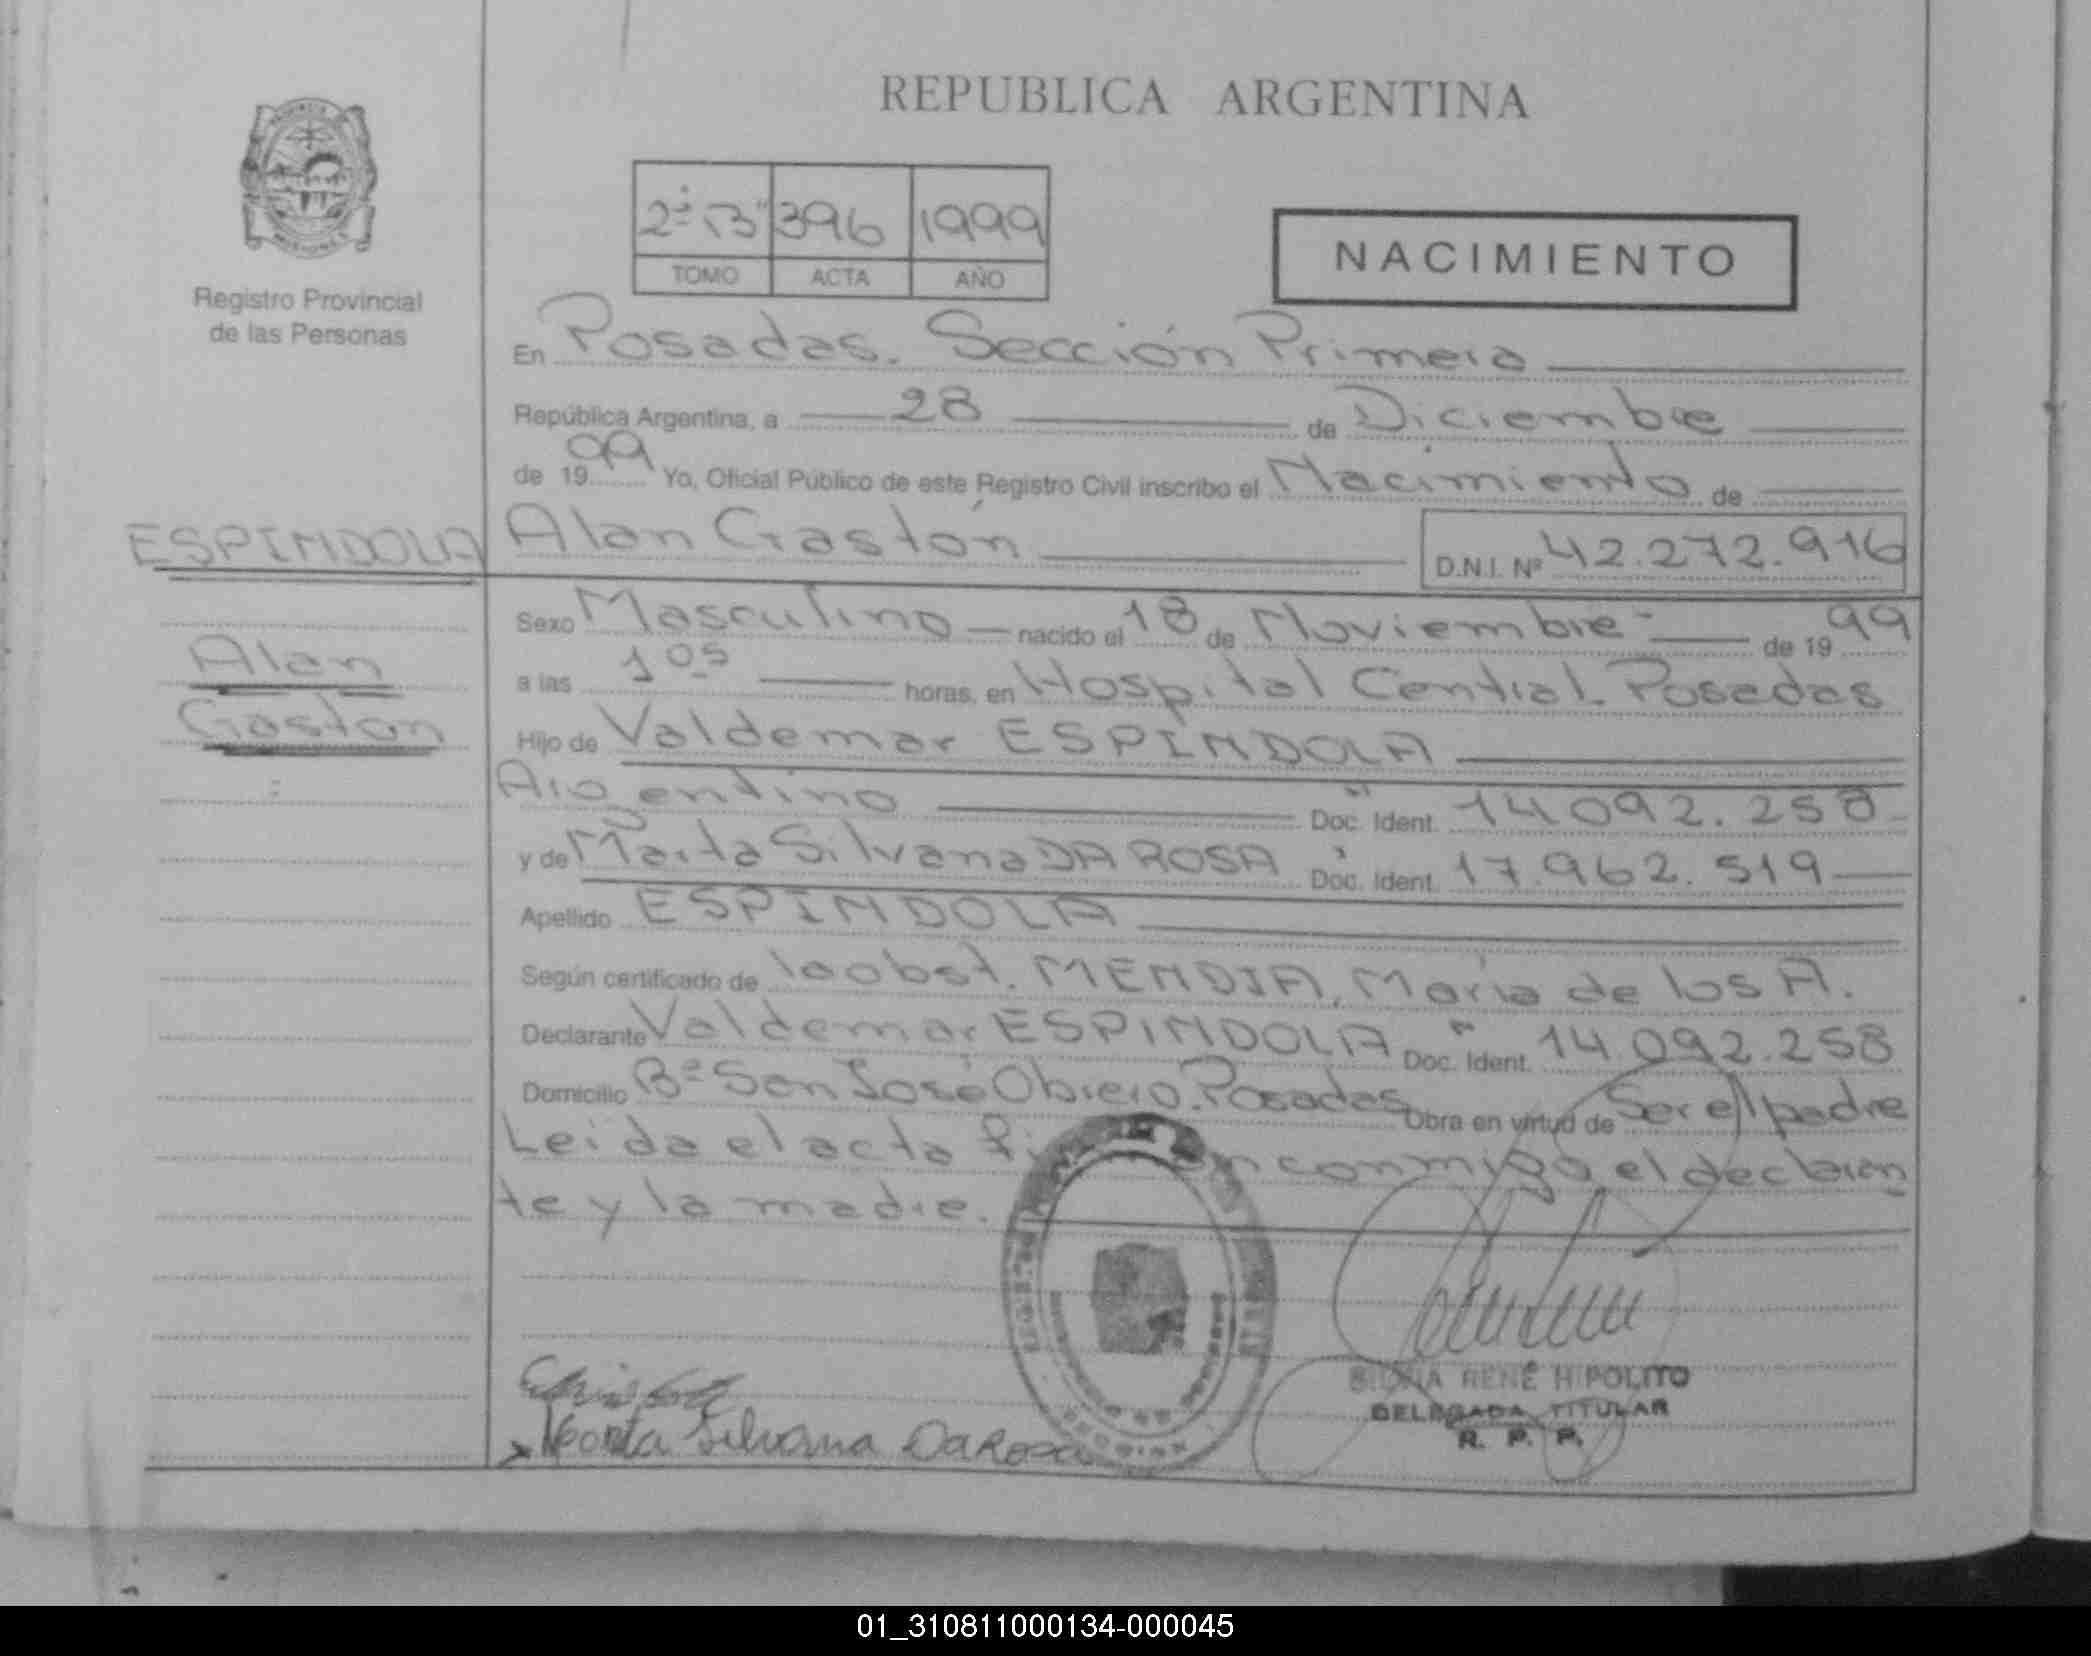 REPUBLICA ARGENTINA
2º "B" 396 1999
TOMO ACTA AÑO
NACIMIENTO
MISIONES
Registro Provincial
de las Personas
En Posadas. Sección Primera
República Argentina, a 28 de Diciembre
de 1999 Yo, Oficial Público de este Registro Civil inscribo el Nacimiento de
ESPINDOLA Alan Gastón D.N.I. Nº 42.272.916
Sexo Masculino nacido el 18 de Noviembre de 1999
Alan
a las 10⁰⁵ horas, en Hospital Central. Posadas
Gastón
Hijo de Valdemar ESPINDOLA
Argentino Doc. Ident. 14.092.258
y de Marta Silvana DA ROSA Doc. Ident. 17.962.519
Apellido ESPINDOLA
Según certificado de la obst. MENDIA, María de los A.
Declarante Valdemar ESPINDOLA Doc. Ident. 14.092.258
Domicilio Bº San José Obrero. Posadas Obra en virtud de Ser el padre
Leida el acta conmigo el declaran
te y la madre.
Marta Silvana Da Rosa
RENÉ HIPOLITO
DELEGADA TITULAR
R. P. P.
01_310811000134-000045